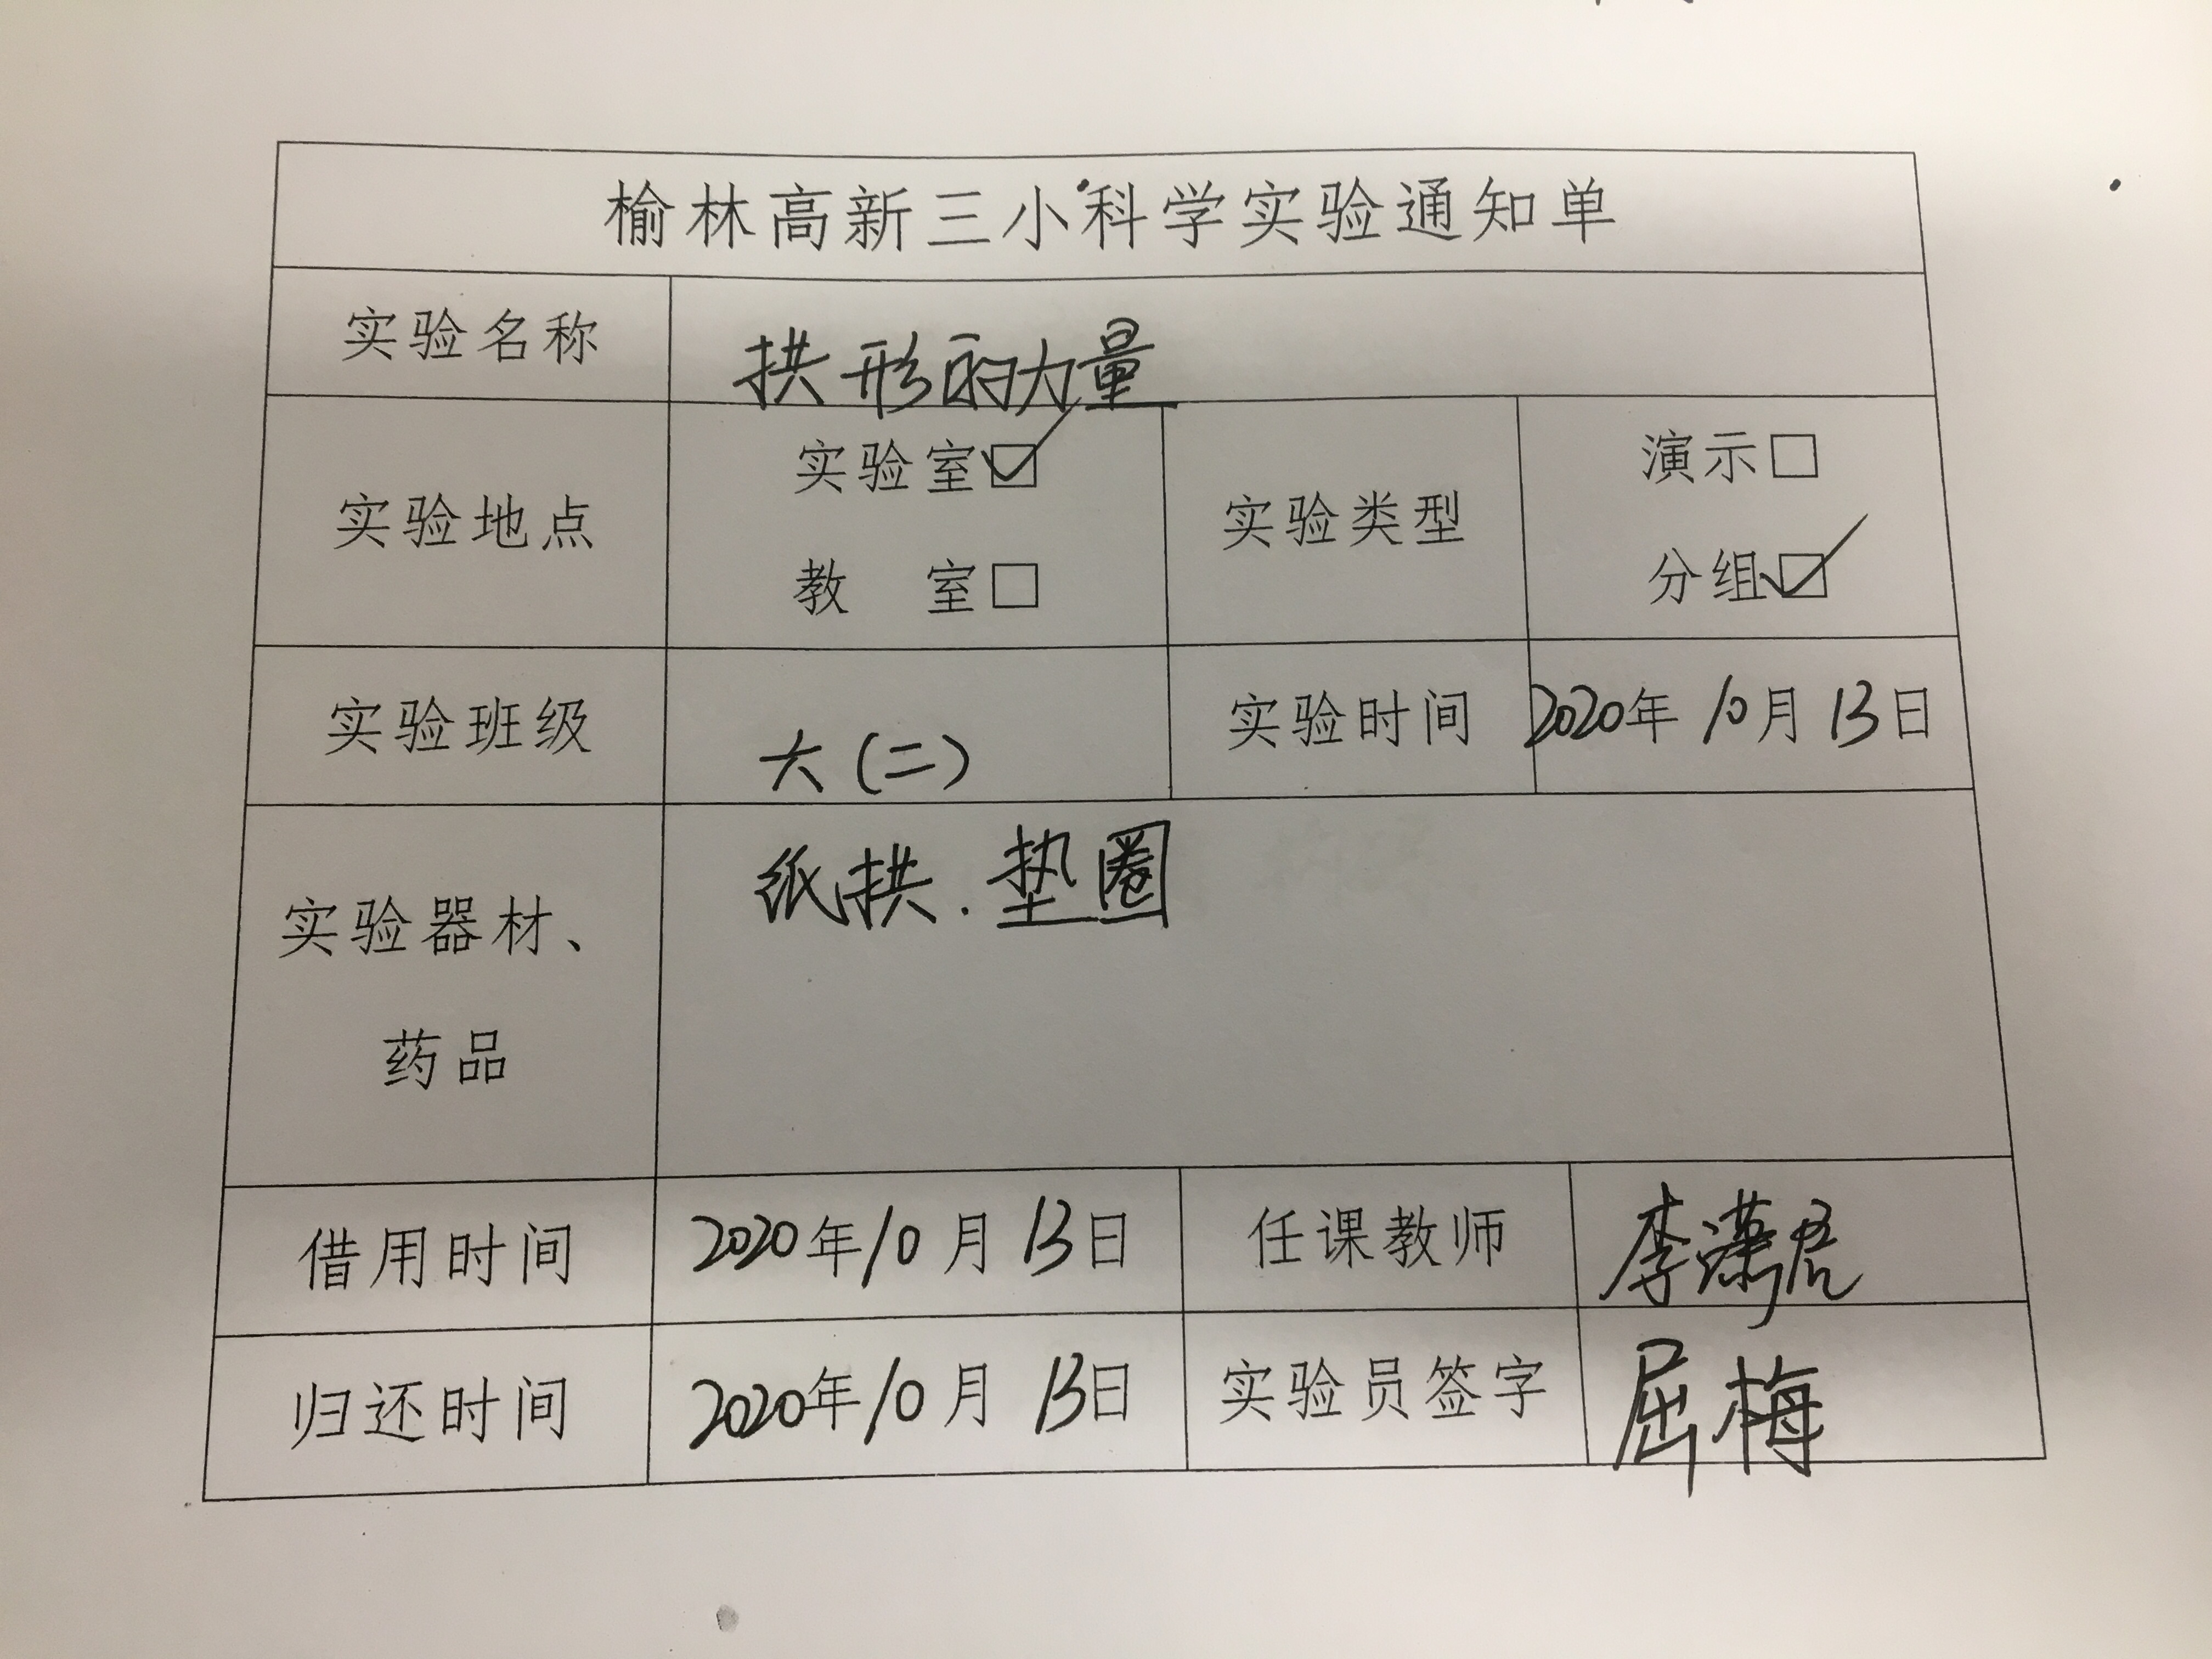 榆林高新三小科学实验通知单
实验名称 拱形的力量
实验地点 实验室☑ 教 室□ 实验类型 演示□ 分组☑
实验班级 六(二) 实验时间 2020年10月13日
实验器材、药品 纸拱.垫圈
借用时间 2020年10月13日 任课教师 李
归还时间 2020年10月13日 实验员签字 屈梅